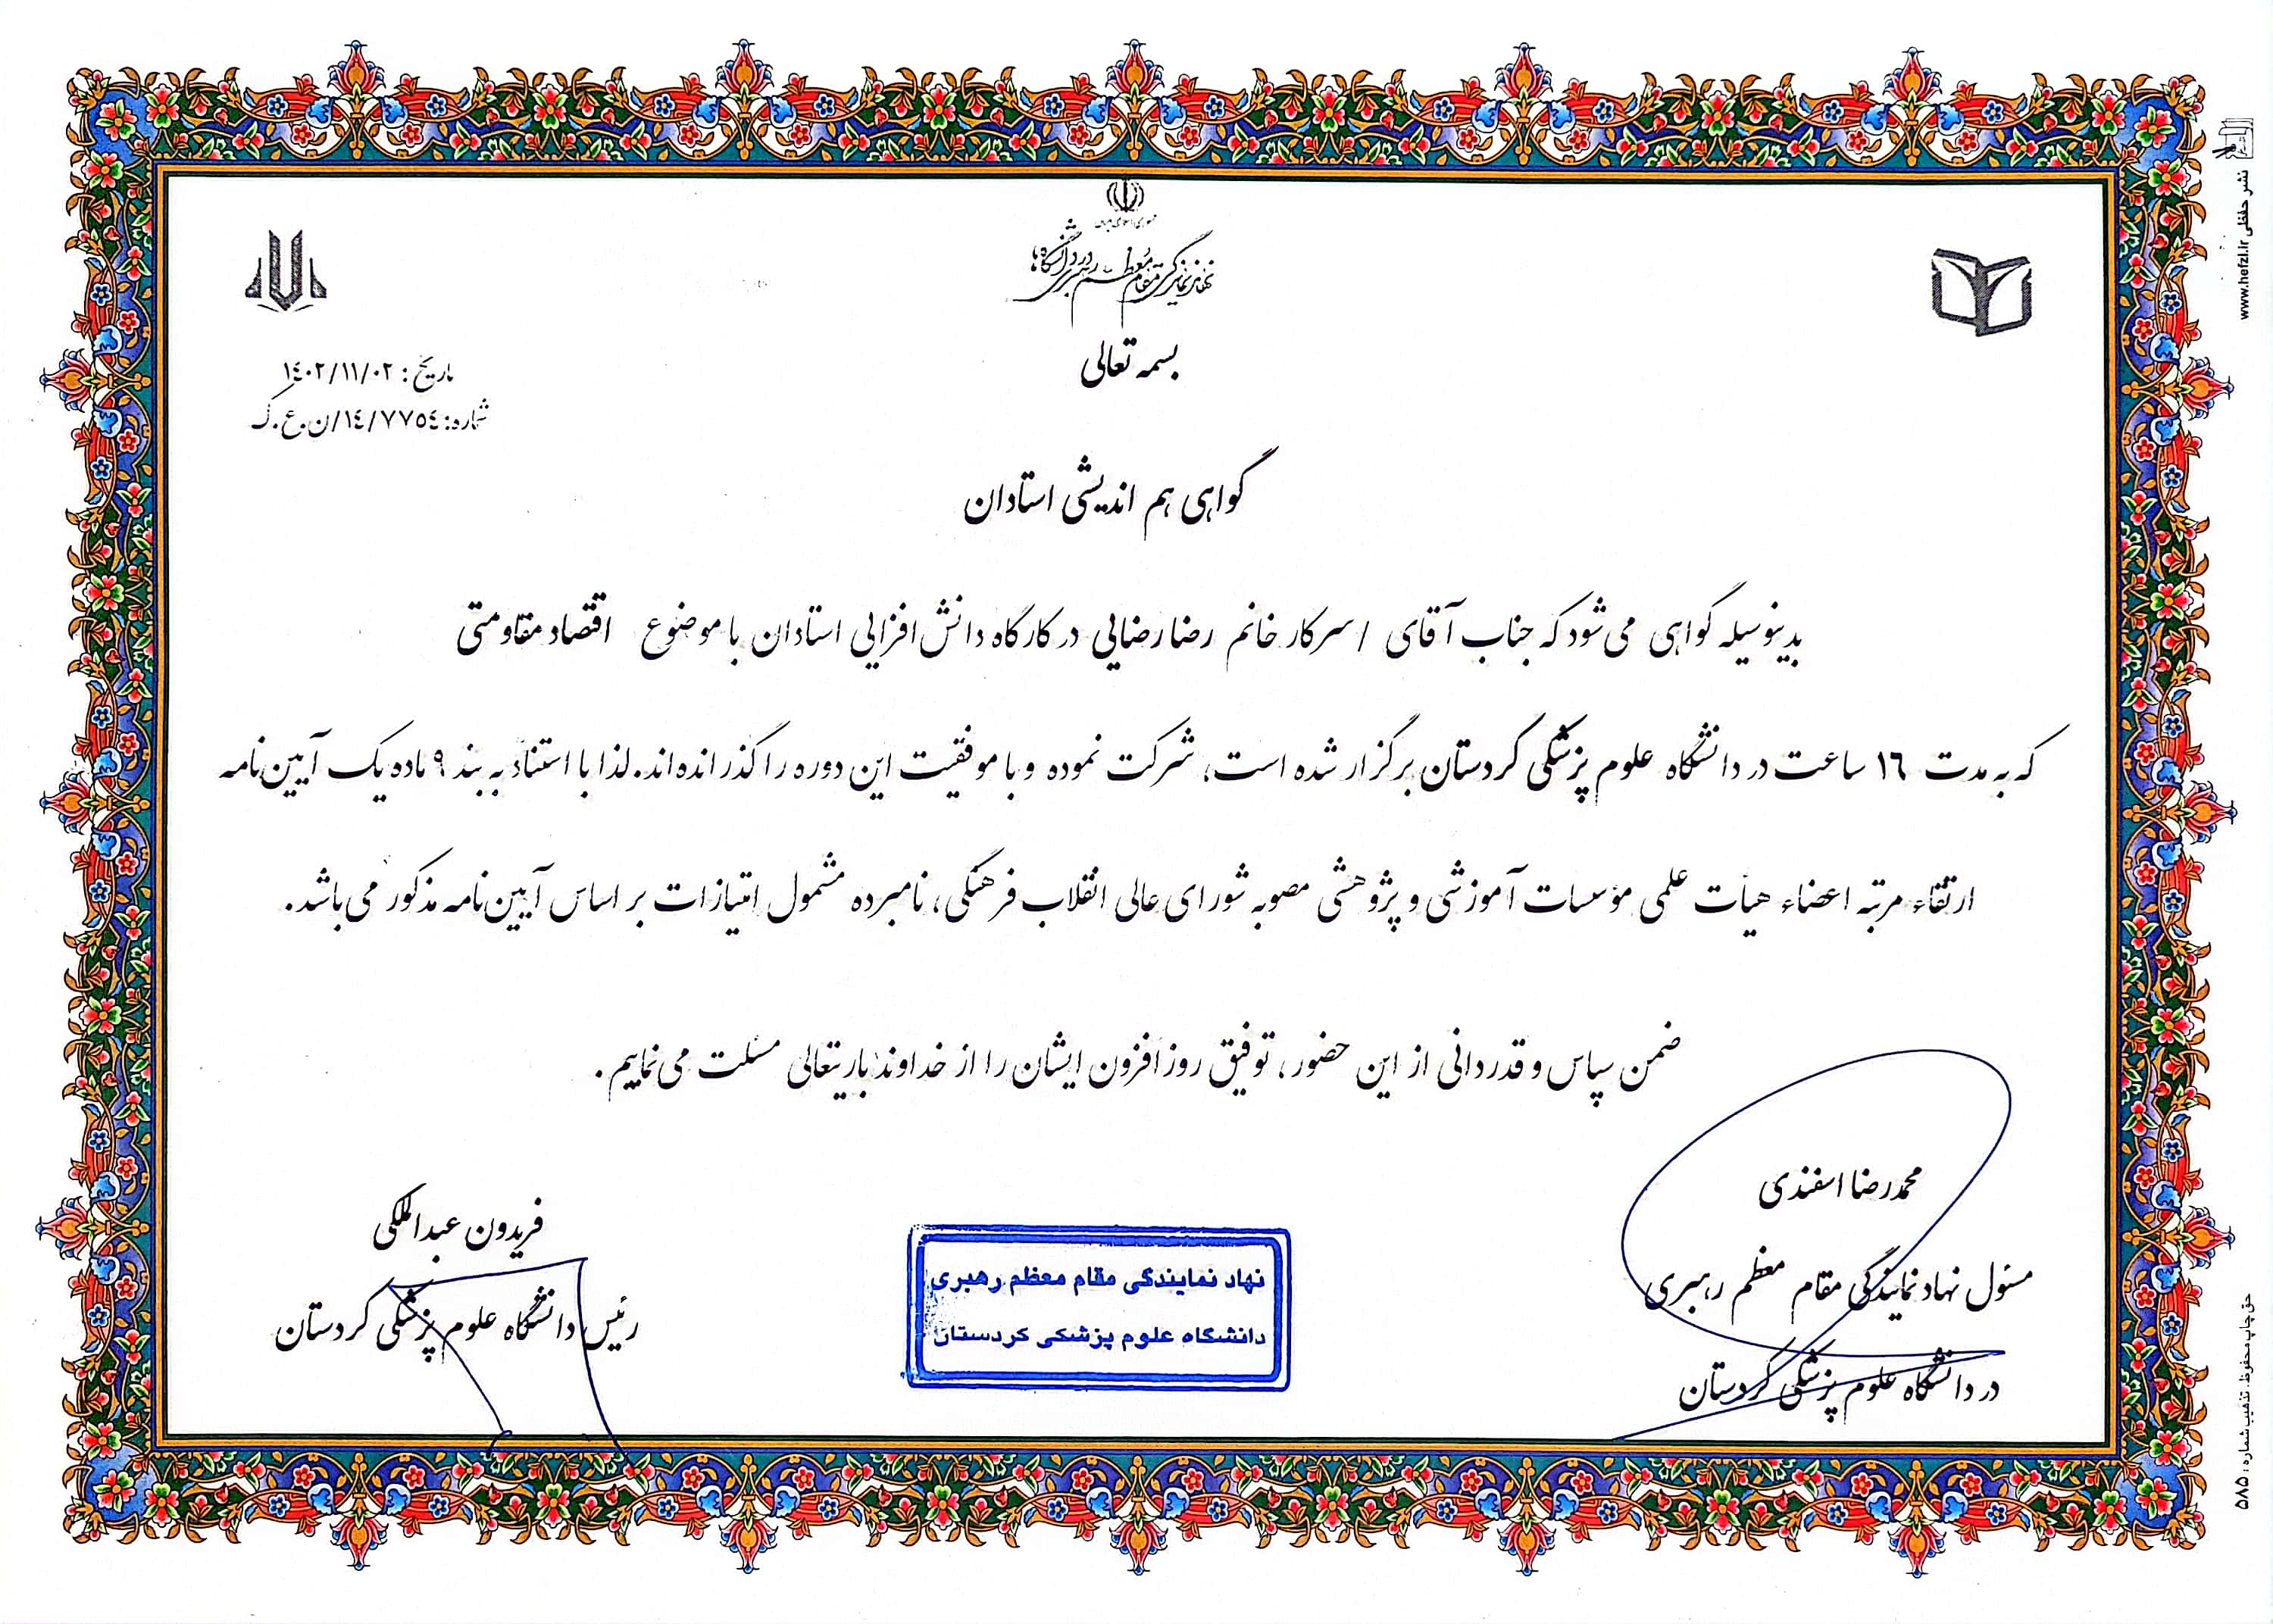 جمهوری اسلامی ایران
نهاد نمایندگی مقام معظم رهبری در دانشگاه‌ها
بسمه تعالی
تاریخ : ١٤٠٢/١١/٠٢
شماره: ١٤/٧٧٥٤/ن.ع.ک
گواهی هم اندیشی استادان
بدینوسیله گواهی می‌شود که جناب آقای / سرکار خانم رضا رضایی در کارگاه دانش افزایی استادان با موضوع اقتصاد مقاومتی
که به مدت ١٦ ساعت در دانشگاه علوم پزشکی کردستان برگزار شده است، شرکت نموده و با موفقیت این دوره را گذرانده‌اند. لذا با استناد به بند ٩ ماده یک آیین‌نامه
ارتقاء مرتبه اعضاء هیأت علمی مؤسسات آموزشی و پژوهشی مصوبه شورای عالی انقلاب فرهنگی، نامبرده مشمول امتیازات بر اساس آیین‌نامه مذکور می‌باشد.
ضمن سپاس و قدردانی از این حضور، توفیق روزافزون ایشان را از خداوند باریتعالی مسئلت می‌نماییم.
محمدرضا اسفندی
مسئول نهاد نمایندگی مقام معظم رهبری
در دانشگاه علوم پزشکی کردستان
نهاد نمایندگی مقام معظم رهبری
دانشگاه علوم پزشکی کردستان
فریدون عبدالملکی
رئیس دانشگاه علوم پزشکی کردستان
نشر حفظی www.hefzi.ir
حق چاپ محفوظ. تذهیب شماره: ۵۸۵